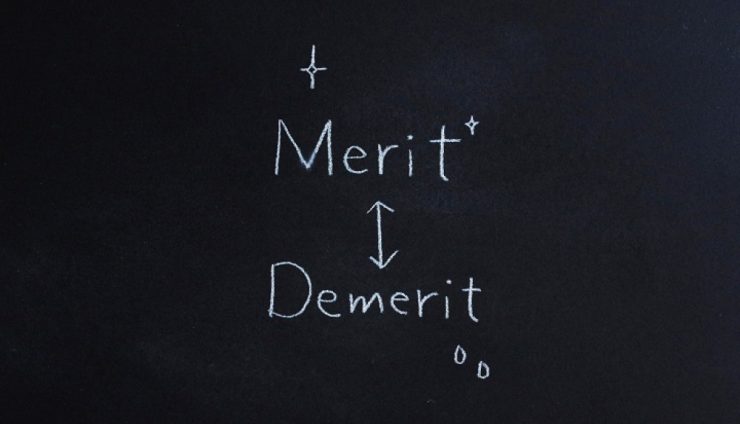 Merit
Demerit